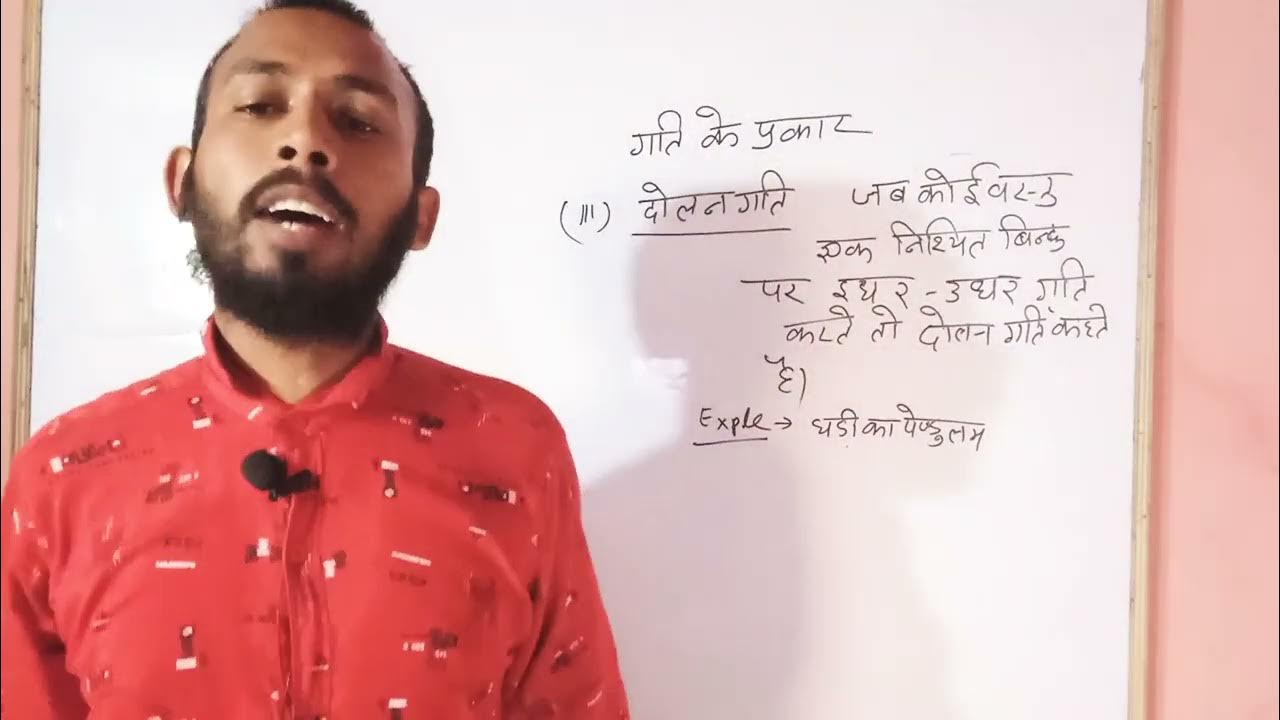 गति के प्रकार
(III) दोलन गति जब कोई वस्तु
एक निश्चित बिन्दु
पर इधर-उधर गति
करते तो दोलन गति कहते
है।
Exple → घड़ी का पेण्डुलम